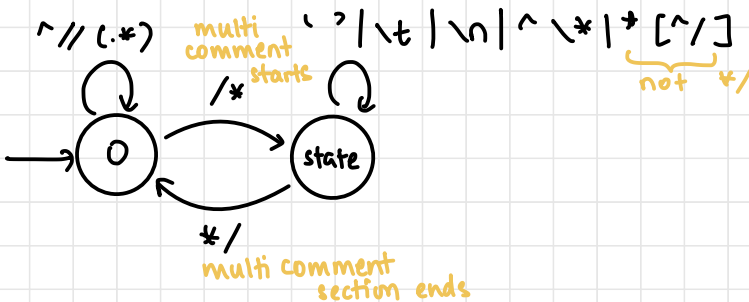 ^//(.*)
multi
comment
starts
/*
' ' | \t | \n | ^ \* | * [^/]
not */
0
state
*/
multi comment
section ends